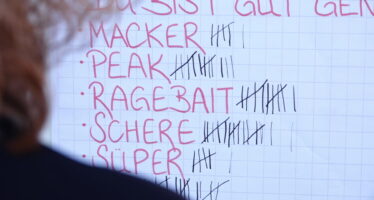 DU BIST GUT GEN
· MACKER
· PEAK
· RAGEBAIT
· SCHERE
· SÜPER